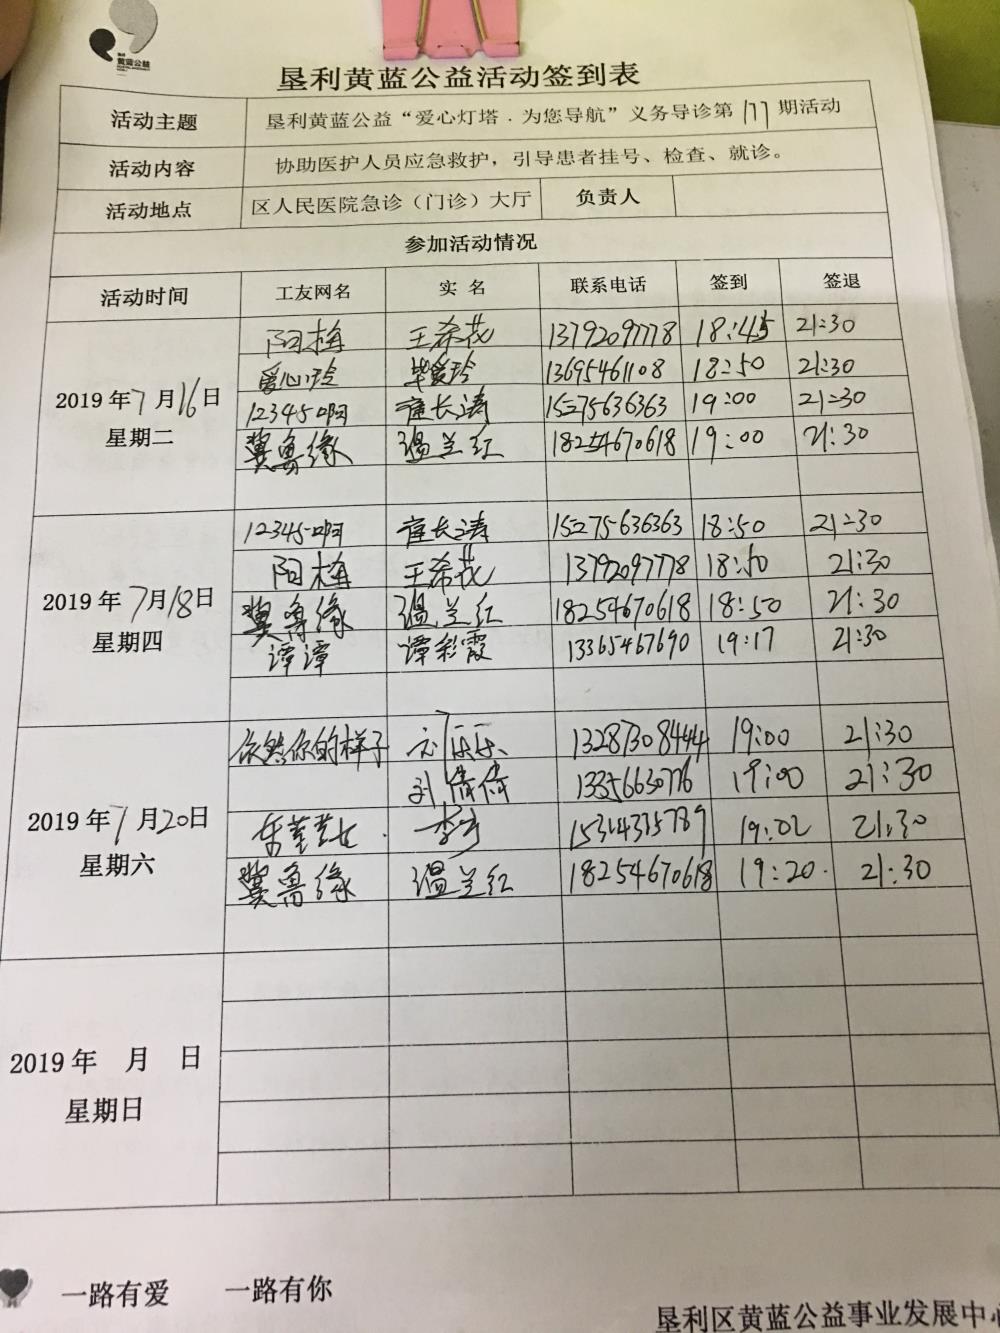 黄蓝公益
垦利黄蓝公益活动签到表
活动主题 垦利黄蓝公益“爱心灯塔．为您导航”义务导诊第177期活动
活动内容 协助医护人员应急救护，引导患者挂号、检查、就诊。
活动地点 区人民医院急诊（门诊）大厅 负责人
参加活动情况
活动时间 工友网名 实 名 联系电话 签到 签退
2019年7月16日
星期二
阳梅 王希花 13792097778 18:45 21:30
爱心玲 毕爱玲 13695461108 18:50 21:30
12345啊 崔长涛 15275636363 19:00 21:30
冀鲁缘 温兰红 18254670618 19:00 21:30
2019年7月18日
星期四
12345啊 崔长涛 15275636363 18:50 21:30
阳梅 王希花 13792097778 18:50 21:30
冀鲁缘 温兰红 18254670618 18:50 21:30
谭谭 谭彩霞 13365467690 19:17 21:30
2019年7月20日
星期六
依然你的样子 13287308444 19:00 21:30
刘倩倩 13356630776 19:00 21:30
15314315789 19:02 21:30
冀鲁缘 温兰红 18254670618 19:20. 21:30
2019年 月 日
星期日
一路有爱 一路有你
垦利区黄蓝公益事业发展中心